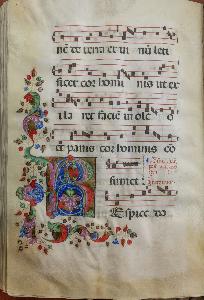 nē de terra et vi nū leti
ficet cor homi nis ut ex
ila ret faciē in ole o
et panis cor hominis cō
firmet
Respice do